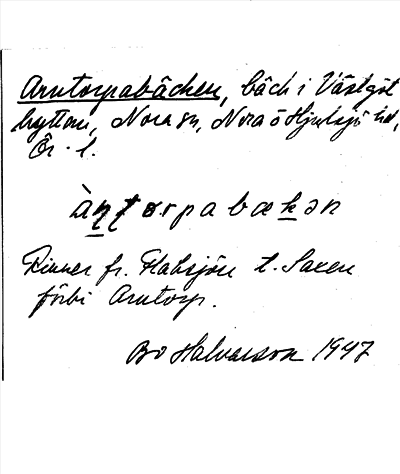 Arntorpabäcken, bäck i Västgöt
hyttan, Nora sn, Nora o Hjulsjö hd,
Ör. l.
àṇṭorpabækən
Rinner fr. Habsjön t. Saxen
förbi Arntorp.
Bo Halvarson 1947